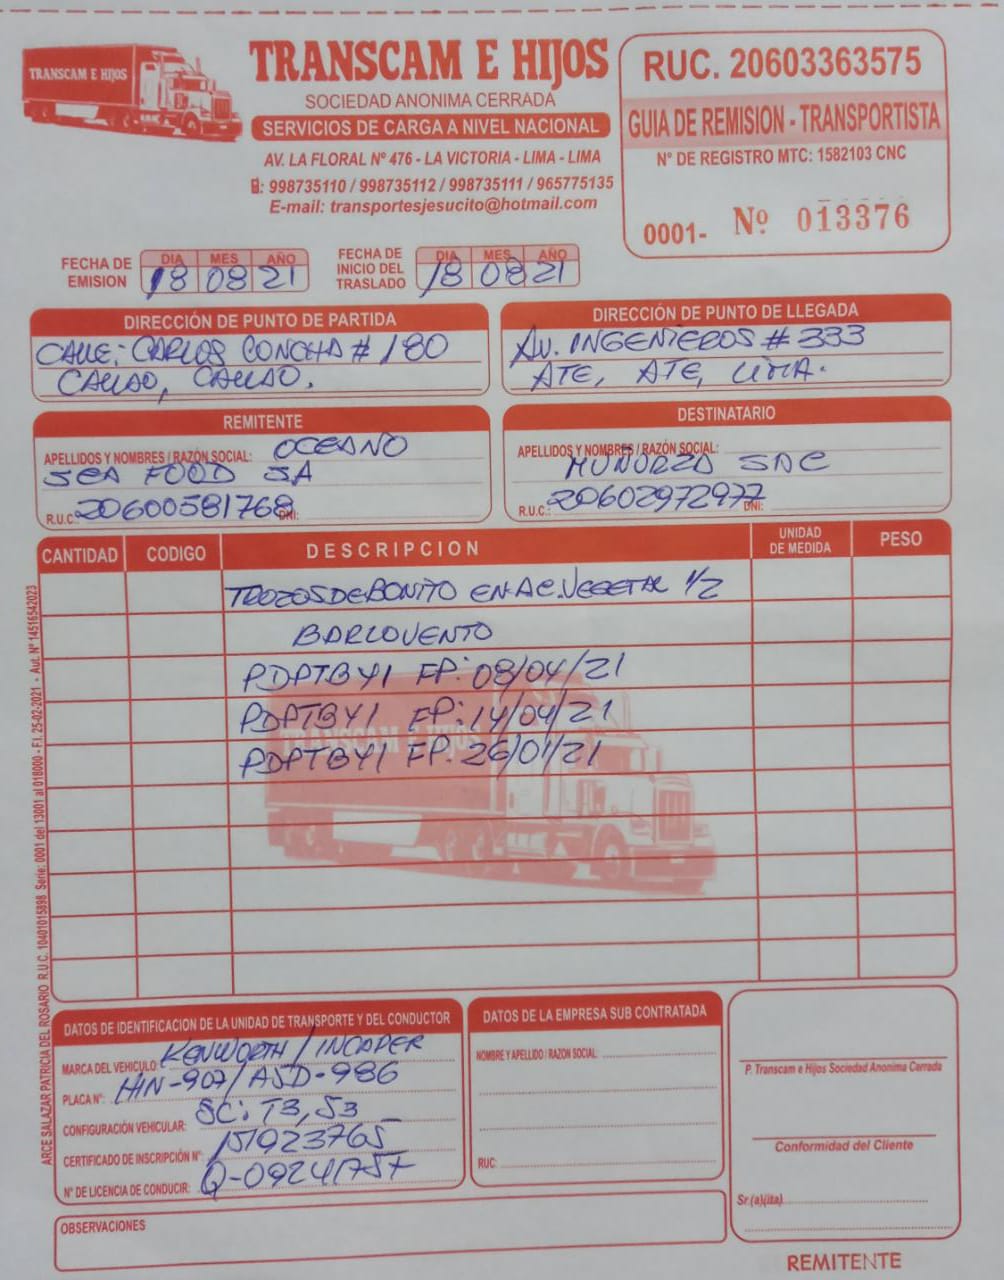 TRANSCAM E HIJOS
TRANSCAM E HIJOS
SOCIEDAD ANONIMA CERRADA
SERVICIOS DE CARGA A NIVEL NACIONAL
AV. LA FLORAL Nº 476 - LA VICTORIA - LIMA - LIMA
: 998735110 / 998735112 / 998735111 / 965775135
E-mail: transportesjesucito@hotmail.com
RUC. 20603363575
GUIA DE REMISION - TRANSPORTISTA
N° DE REGISTRO MTC: 1582103 CNC
0001- Nº 013376
FECHA DE EMISION
DIA MES AÑO
18 08 21
FECHA DE INICIO DEL TRASLADO
DIA MES AÑO
18 08 21
DIRECCIÓN DE PUNTO DE PARTIDA
CALLE: CARLOS CONCHA # 180
CALLAO, CALLAO.
DIRECCIÓN DE PUNTO DE LLEGADA
AV. INGENIEROS # 333
ATE, ATE, LIMA.
REMITENTE
APELLIDOS Y NOMBRES / RAZÓN SOCIAL: OCEANO
SEA FOOD SA
R.U.C.: 20600581768 DNI:
DESTINATARIO
APELLIDOS Y NOMBRES / RAZÓN SOCIAL:
MUÑORZA SAC
R.U.C.: 20602972977 DNI:
CANTIDAD CODIGO DESCRIPCION UNIDAD DE MEDIDA PESO
TROZOS DE BONITO EN AC. VEGETAL 1/2
BARLOVENTO
PDPTBY1 FP: 08/04/21
PDPTBY1 FP: 14/04/21
PDPTBY1 FP: 26/01/21
ARCE SALAZAR PATRICIA DEL ROSARIO R.U.C. 10401015898 Serie: 0001 del 13001 al 018000 - F.I. 25-02-2021 - Aut. Nº 14516542023
DATOS DE IDENTIFICACION DE LA UNIDAD DE TRANSPORTE Y DEL CONDUCTOR
MARCA DEL VEHICULO: KENWORTH / INCAPER
PLACA N°: / ASD-986
CONFIGURACIÓN VEHICULAR: SC: T3, S3
CERTIFICADO DE INSCRIPCIÓN N°: 151923765
N° DE LICENCIA DE CONDUCIR: Q-09241757
DATOS DE LA EMPRESA SUB CONTRATADA
NOMBRE Y APELLIDO / RAZON SOCIAL:
RUC:
P. Transcam e Hijos Sociedad Anonima Cerrada
Conformidad del Cliente
Sr(a)(ita)
OBSERVACIONES
REMITENTE